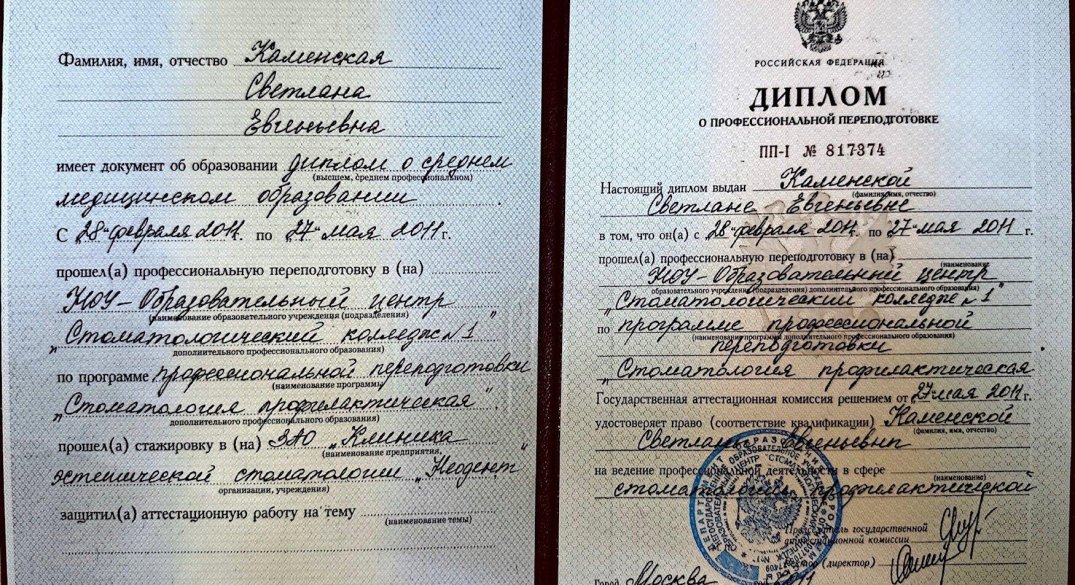 Фамилия, имя, отчество Каменская
Светлана
Евгеньевна
имеет документ об образовании диплом о среднем
(высшем, среднем профессиональном)
медицинском образовании
С „28“ февраля 2011 г. по „27“ мая 2011 г.
прошел(а) профессиональную переподготовку в (на)
НОУ - Образовательный центр
(наименование образовательного учреждения (подразделения)
„Стоматологический колледж №1"
дополнительного профессионального образования)
по программе профессиональной переподготовки
(наименование программы
„Стоматология профилактическая"
дополнительного профессионального образования)
прошел(а) стажировку в (на) ЗАО „Клиника
(наименование предприятия,
эстетической стоматологии „Неодент"
организации, учреждения)
защитил(а) аттестационную работу на тему
(наименование темы)
РОССИЙСКАЯ ФЕДЕРАЦИЯ
ДИПЛОМ
О ПРОФЕССИОНАЛЬНОЙ ПЕРЕПОДГОТОВКЕ
ПП-I № 817374
Настоящий диплом выдан Каменской
(фамилия, имя, отчество)
Светлане Евгеньевне
в том, что он(а) с 28 февраля 2011. по 27 мая 2011 г.
прошел(а) профессиональную переподготовку в (на)
(наименование
НОУ - Образовательный центр
образовательного учреждения (подразделения) дополнительного профессионального образования)
„Стоматологический колледж №1"
по программе профессиональной
(наименование программы дополнительного профессионального образования)
переподготовки
„Стоматология профилактическая
Государственная аттестационная комиссия решением от 27 мая 2011 г.
удостоверяет право (соответствие квалификации) Каменской
(фамилия, имя, отчество)
Светланы Евгеньевны
на ведение профессиональной деятельности в сфере
(наименование)
стоматологии профилактической
Председатель государственной
аттестационной комиссии
Ректор (директор)
Город Москва 2011